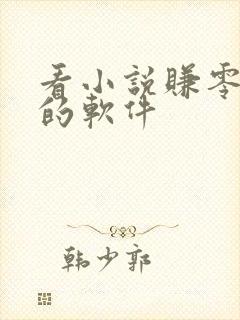 看小説賺零
的軟件
韩少郭